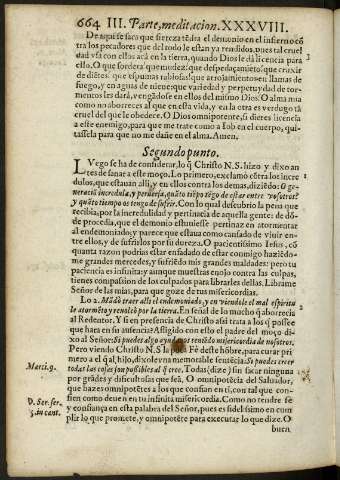 664 III. Parte, meditacion. XXXVIII.
De aqui se saca que fiereza tẽdra el demonio en el infierno cõ
tra los pecadores que del todo le estan ya rendidos, pues tal cruel
dad vsa con ellos acà en la tierra, quando Dios le dà licencia para
ello. O que sordera! que mudez! que despedaçamiẽto! que cruxir
de diẽtes! que espumas rabiosas! que arrojamientos en llamas de
fuego, y en aguas de nieue: que variedad y perpetuydad de tor-
mentos les darà, vengãdose en ellos del mismo Dios? O alma mia
como no aborreces al que en esta vida, y en la otra es verdugo tã
cruel del que le obedece. O Dios omnipotente, si dieres licencia
a este enemigo, para que me trate como a Iob en el cuerpo, qui-
tasela para que no me dañe en el alma. Amen.
Segundo punto.
LVego se ha de considerar, lo q̃ Christo N. S. hizo y dixo an
tes de sanar a este moço. Lo primero, exclamò cõtra los incre
dulos, que estauan alli, y en ellos contra los demas, diziẽdo: O ge
neraciõ incredula, y peruersa, quãto tiẽpo tẽgo de estar entre vosotros?
y quãto tiẽpo os tengo de sufrir. Con lo qual descubrio la pena que
recibia, por la incredulidad y pertinacia de aquella gente: de dõ-
de procedia, que el demonio estuuiesse pertinaz en atormentar
al endemoniado, y parece que estaua como cansado de viuir en-
tre ellos, y de sufrirlos por su dureza. O pacientissimo Iesus, cõ
quanta razon podrias estar enfadado de estar conmigo haziẽdo-
me grandes mercedes, y sufriẽdo mis grandes maldades: pero tu
paciencia es infinita: y aunque muestras enojo contra las culpas,
tienes compassion de los culpados para librarles dellas. Librame
Señor de las mias, para que goze de tus misericordias.
Lo 2. Mãdò traer alli el endemoniado, y en viendole el mal espiritu
le atormẽtò y reuolcò por la tierra. En señal de lo mucho q̃ aborrecia
al Redentor. Y si en presencia de Christo assi trata a los q̃ possee
que harà en su ausencia? Afligido con esto el padre del moço di-
xo al Señor: Si puedes algo ayudanos teniẽdo misericordia de nosotros.
Pero viendo Christo N. S. la poca Fè deste hõbre, para curar pri
mero a èl q̃ al hijo, dixole vna memorable sentẽcia: Si puedes creer
todas las cosas son possibles al q̃ cree. Todas (dize) sin sacar ninguna
por grãdes y dificultosas que seã. O omnipotẽcia del Saluador,
que hazes omnipotẽtes a los que confian en ti, con tal que con-
fien como deuen en tu infinita misericordia. Como no tendre fè
y confiança en esta palabra del Señor, pues es fidelissimo en cum
plir lo que promete, y omnipotẽte para executar lo que dize. O
buen
Marci. 9.
D. Ber. ser.
in cant.